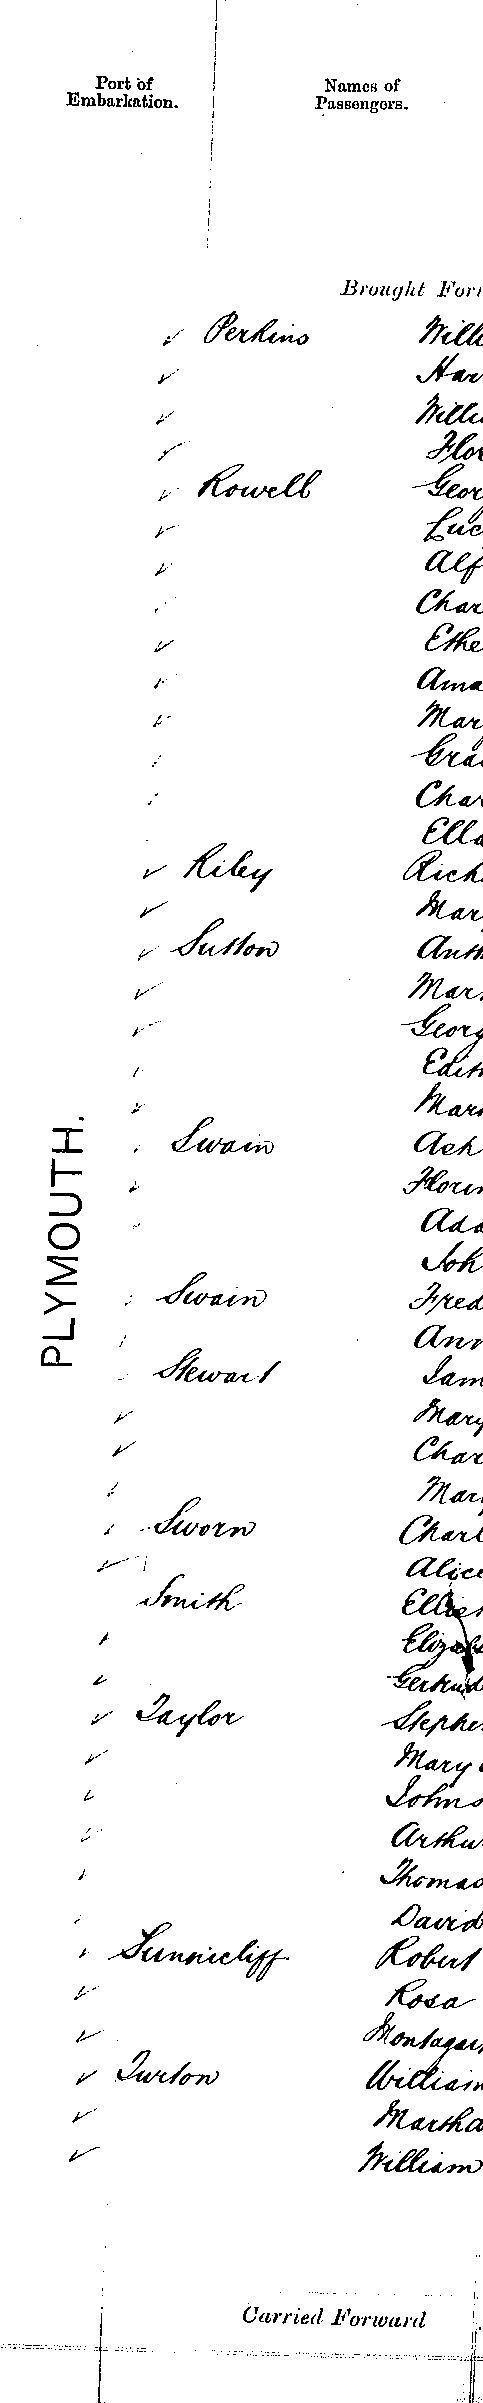 Port of Names of
Embarkation. Passengers.
Brought Forw
Perkins Willi
Har
Willi
Flor
Rowell Geor
Luc
Alf
Char
Ethe
Ama
Mar
Grac
Char
Ella
Riley Rich
Mar
Sutton Anth
Mar
Georg
Edith
Mar
PLYMOUTH.
Swain Ach
Floren
Ada
Joh
Swain Fred
Ann
Stewart Jam
Mary
Char
Mar
Sworn Charl
Alice
Smith
Elizab
Gertrud
Taylor Stephe
Mary
Johns
Arthu
Thomas
David
Sunnicliff Robert
Rosa
Montague
Turton William
Martha
William
Carried Forward